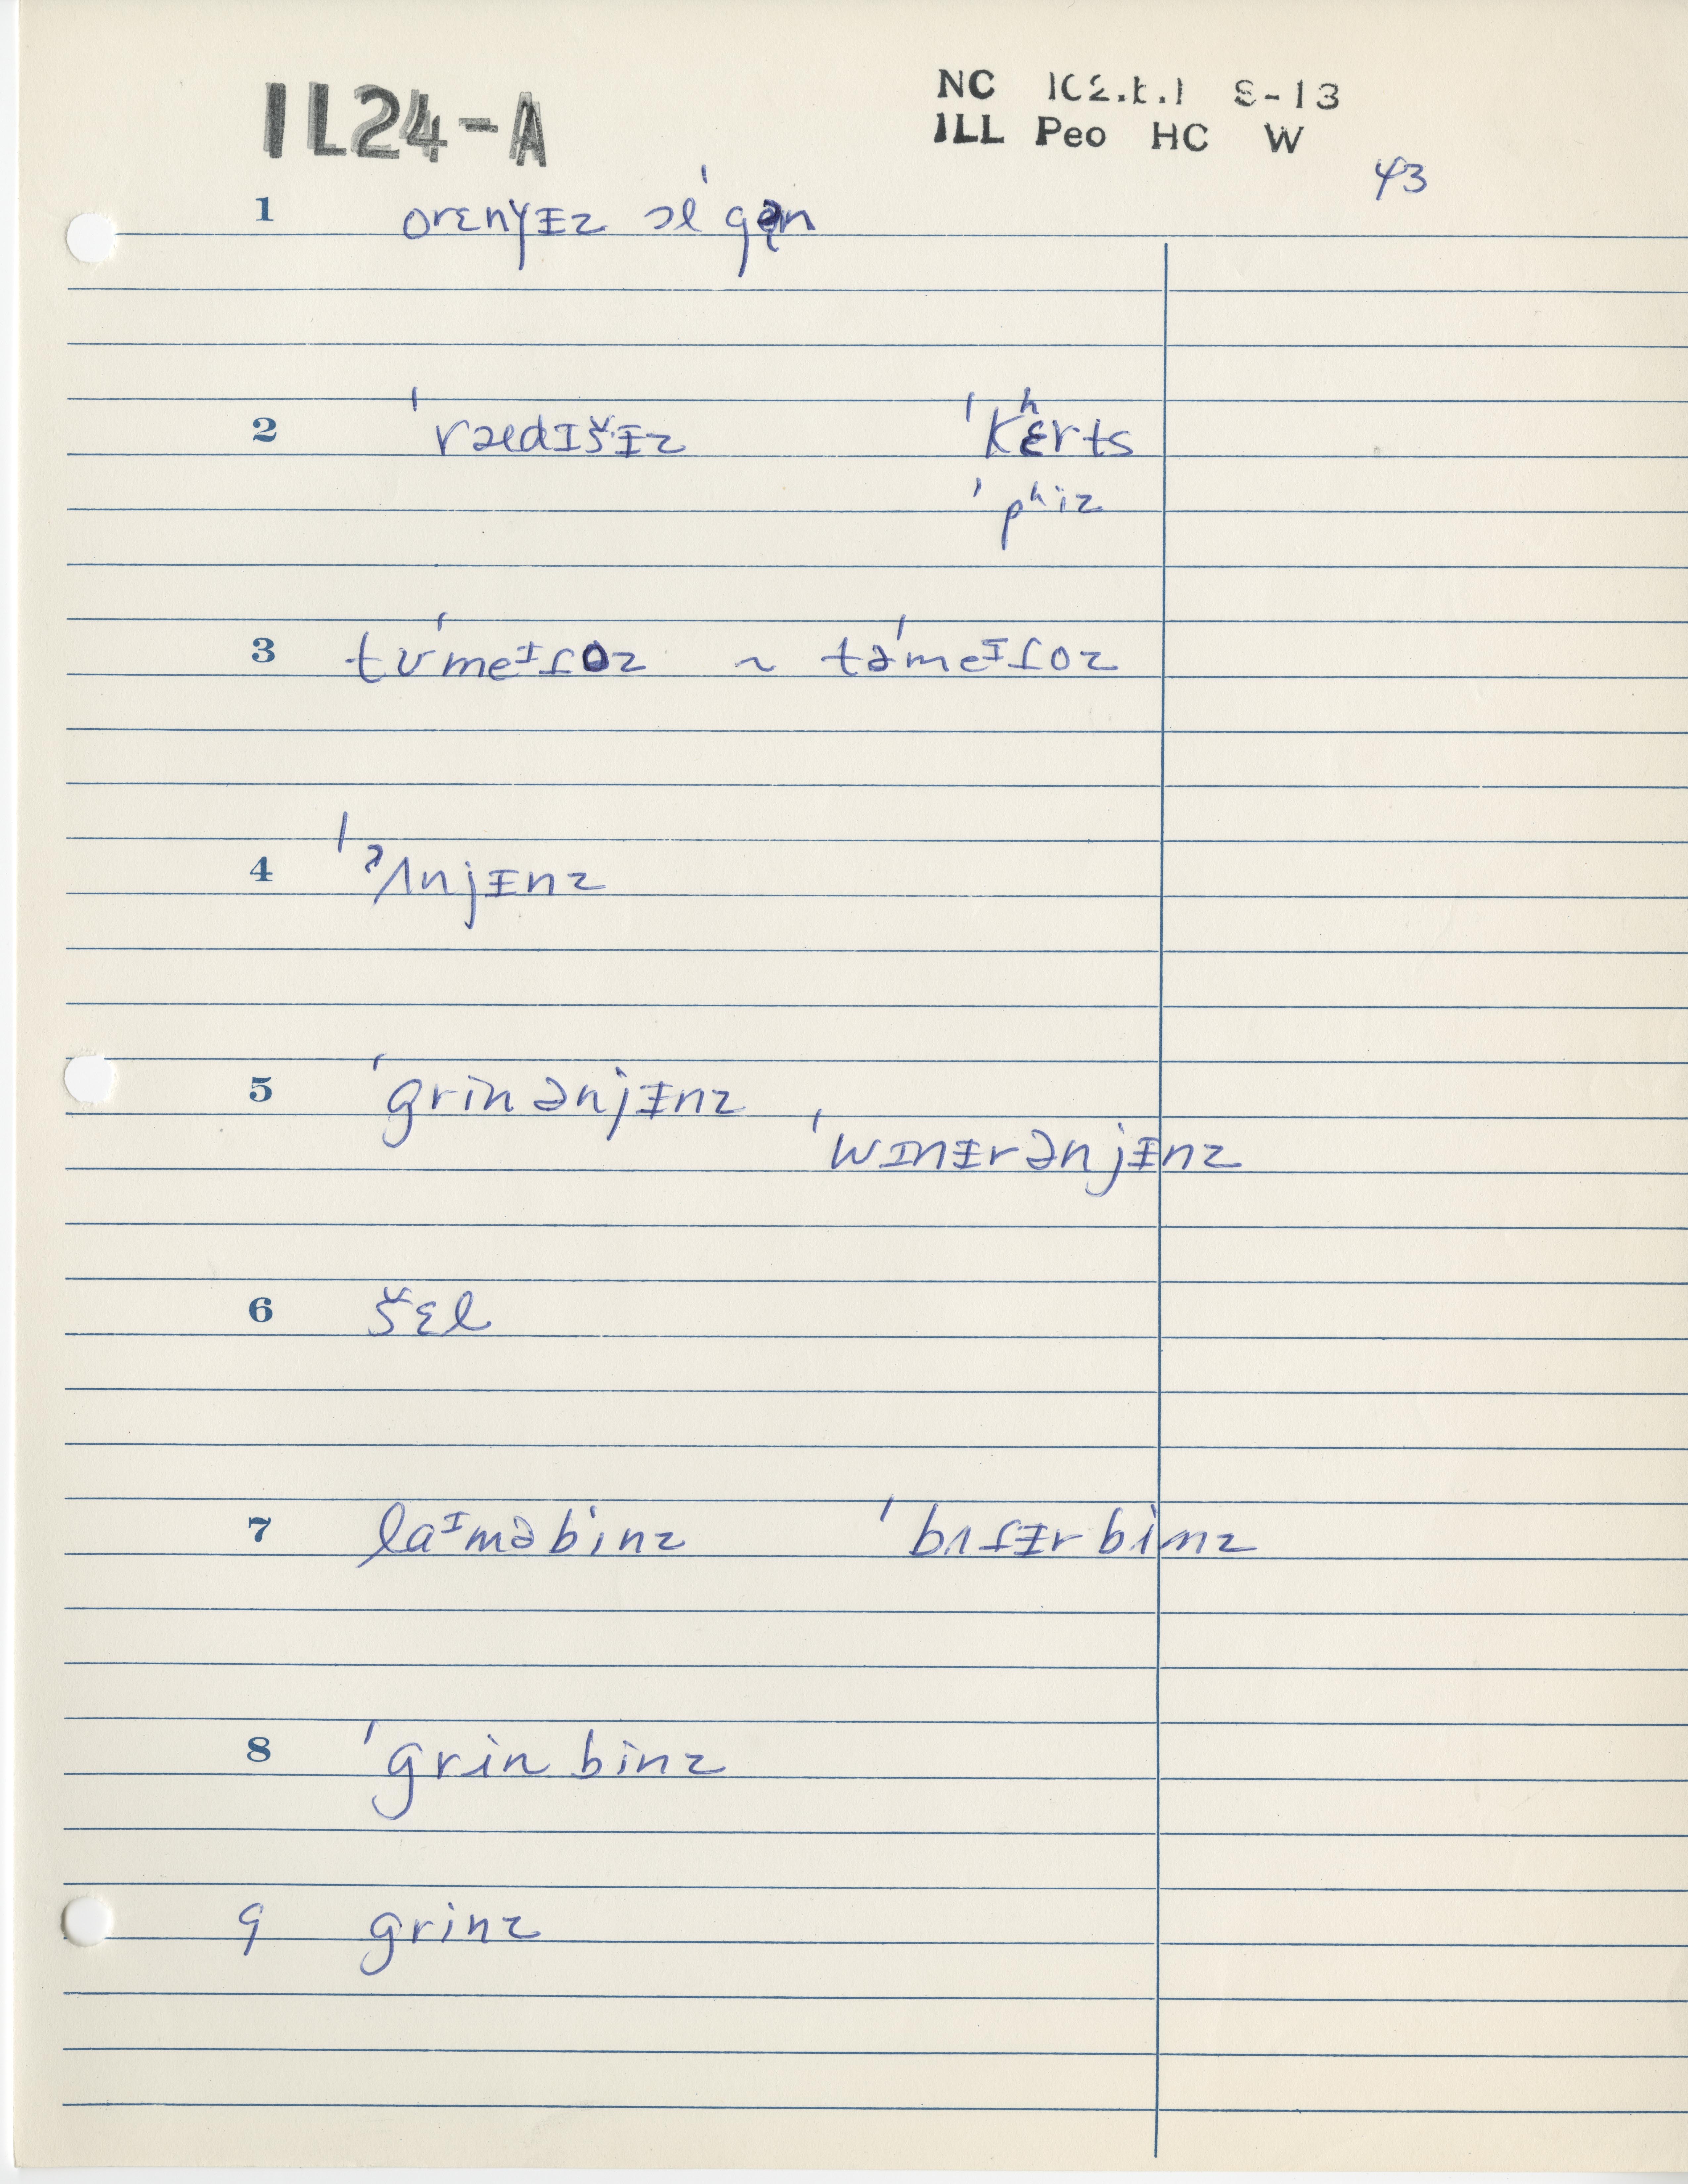 IL24-A
NC 1C2.k.1 S-13
ILL Peo HC W
43
1 orɛnyɪ̵z ɔlˈgɔn
2 ˈrædɪšɪ̵z ˈkʰɛrts
ˈpʰiz
3 tʊˈmeᶦɾoz ~ təˈmeᶦɾoz
4 ˈᵊʌnjɪ̵nz
5 ˈgrinənjɪ̵nz
ˈwɪnɪ̵rənjɪ̵nz
6 šɛl
7 laᶦməbinz ˈbʌɾɪ̵rbinz
8 ˈgrinbinz
9 grinz